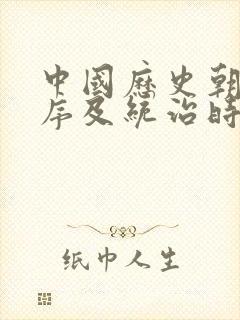 中國歷史朝
序及統治時
纸巾人生